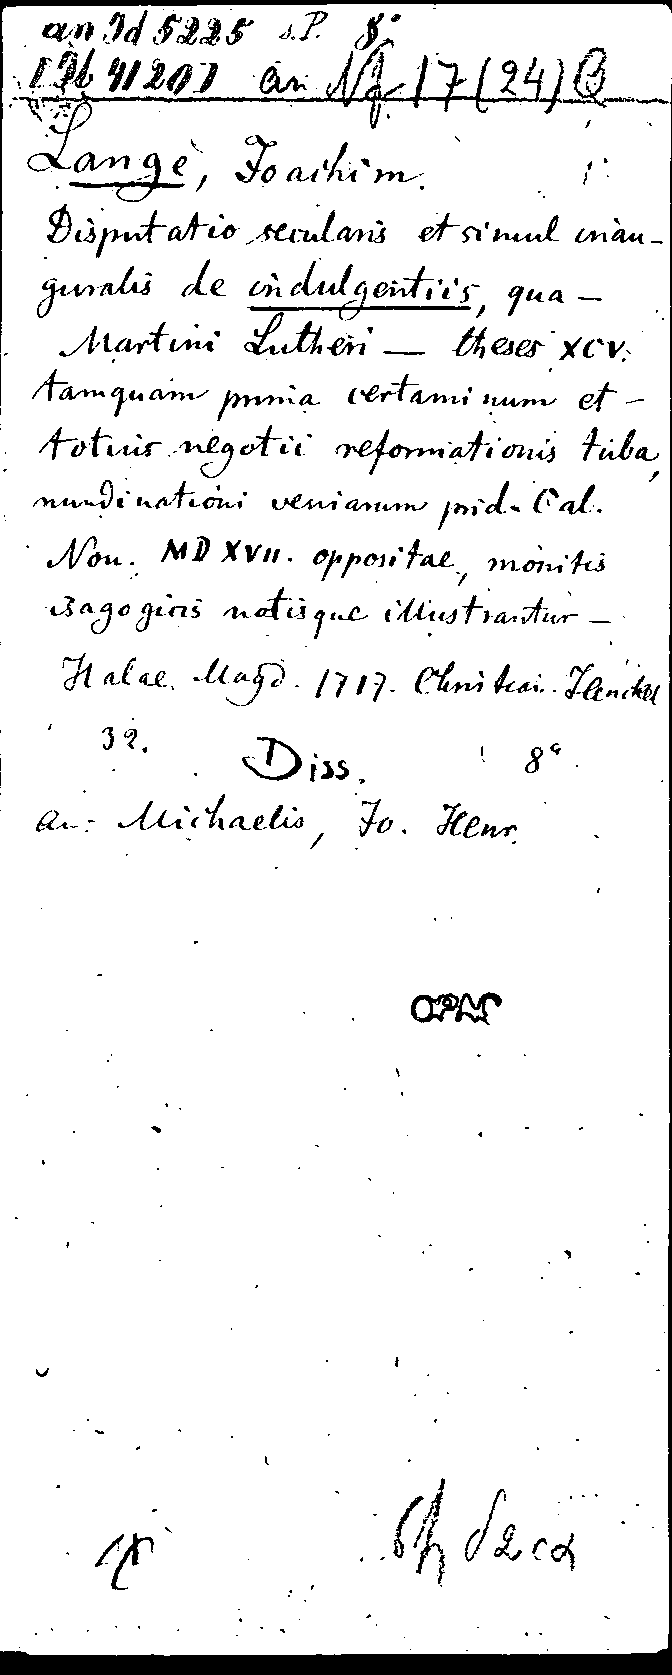 an Id 5225 s.P. 8°
an Nf 17 (24) B
Lange, Joachim.
Disputatio secularis et simul inau-
guralis de indulgentiis, qua —
Martini Lutheri — theses XCV.
tamquam prima certaminum et —
totius negotii reformationis tuba,
nundinationi veniarum prid. Cal.
Nov. MDXVII. oppositae, monitis
isagogicis notisque illustrantur —
Halae Magd. 1717. Christian. Henckel
32. Diss. 8°
an: Michaelis, Jo. Henr.